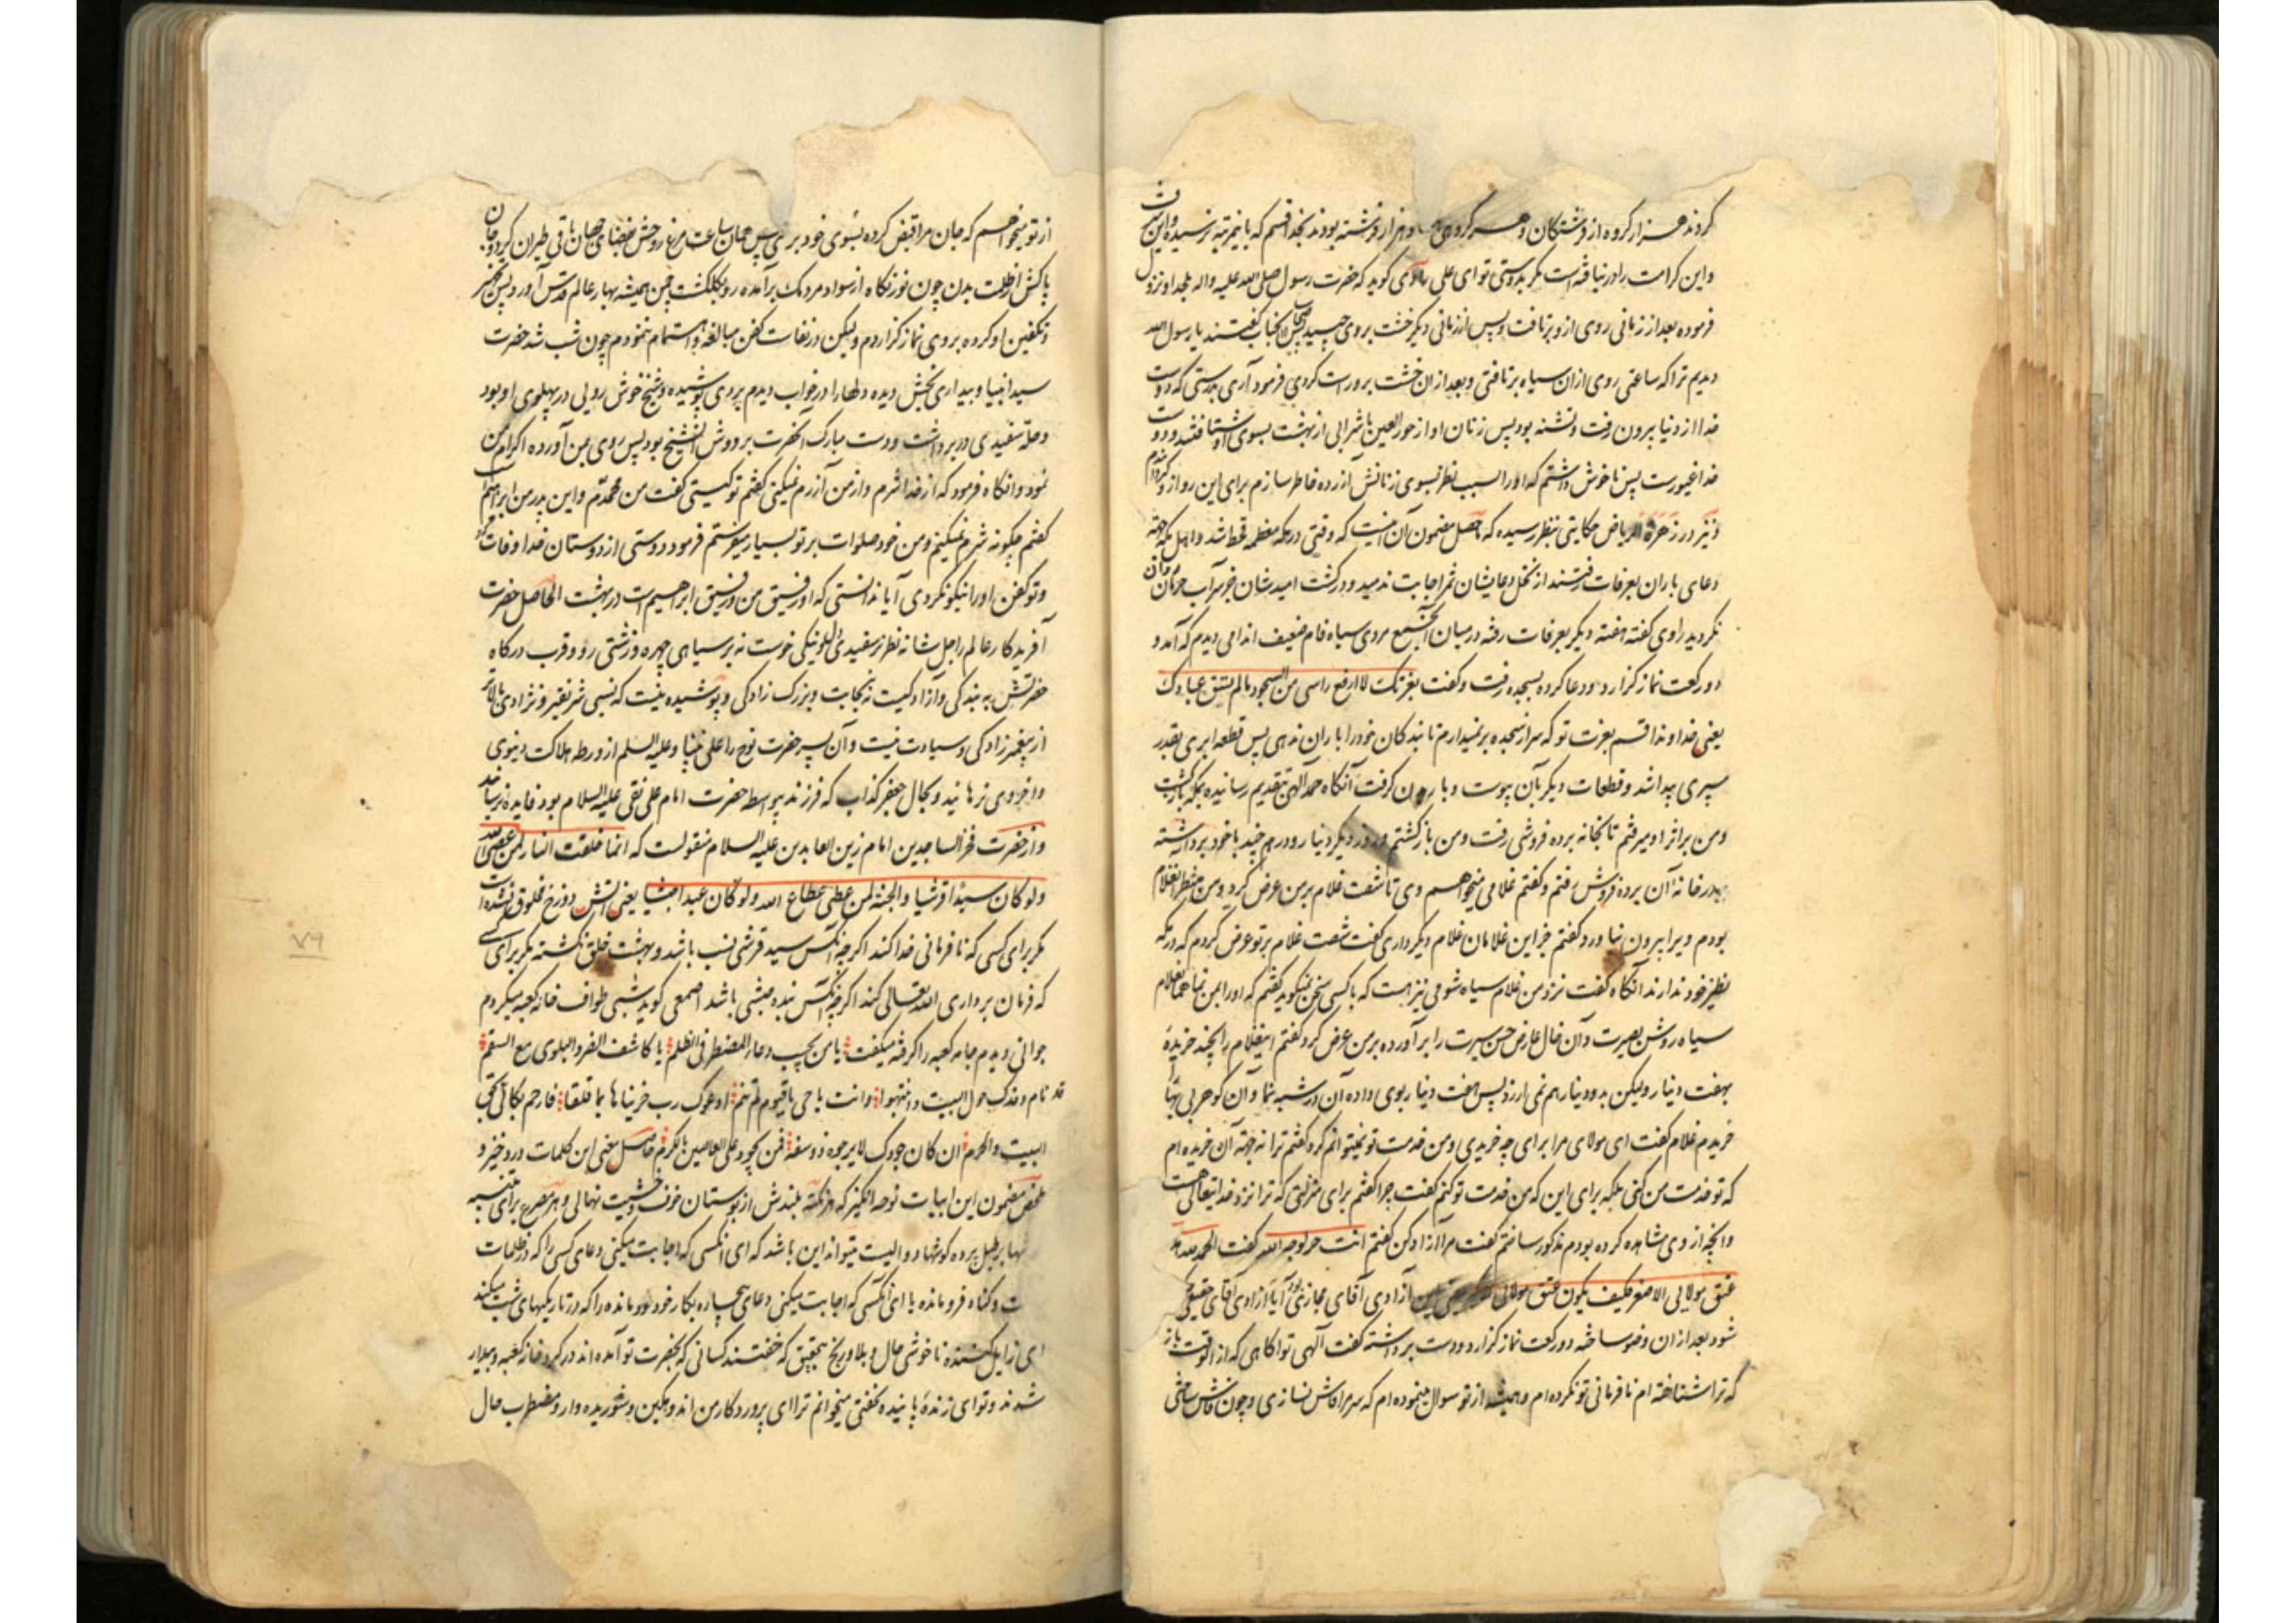 کردند هزار کروه از فرشتکان و هر کروهی هزار فرشته بودند بخدا قسم که باینمرتبه نرسیده و این شان
و این کرامت را در نیافته است مکر بدوستی تو ای علی راوی کوید که حضرت رسول صلی الله علیه و اله بلحد او نزول
فرموده بعد از زمانی روی ازو برتافت و پس از زمانی دیکر خشت بروی چسپید پس اصحاب انجناب کفتند یا رسول الله
دیدیم ترا که ساعتی روی ازان سیاه برتافتی و بعد ازان خشت برو راست کردی فرمود آری بدرستی که دوست
خدا از دنیا بیرون رفت و تشنه بود پس زنان او از حورالعین با شرابی از بهشت بسوی او شتافتند و دوست
خدا غیورست پس ناخوش داشتم که او را بسبب نظر بسوی زنانش آزرده خاطر سازم برای این رو ازو کردانیدم
و نیز در زهرة الریاض حکایتی بنظر رسیده که حاصل مضمون آن اینست که وقتی در مکه معظمه قحط شد و اهل مکه جهة
دعای باران بعرفات رفتند از نخل دعایشان ثمر اجابت ندمید و در کشت امیدشان جز سراب حرمان روان
نکردید راوی کفته هفته دیکر بعرفات رفته در میان آنجمع مردی سیاه فام ضعیف اندامی دیدم که آمد و
دو رکعت نماز کزارد و دعا کرده بسجده رفت و کفت بعزتک لا ارفع راسی من السجود مالم تسق عبادک
یعنی خداوندا قسم بعزت تو که سر از سجده برنمیدارم تا بندکان خود را باران ندهی پس قطعه ابری بقدر
سپری پیدا شد و قطعات دیکر بآن پیوست و باریدن کرفت آنکاه حمد الهی بتقدیم رسانیده بمکه بازکشت
و من بر اثر او میرفتم تا بخانه برده فروشی رفت و من بازکشتم و روز دیکر دینار و درهم چند با خود برداشته
بدر خانه آن برده فروش رفتم و کفتم غلامی میخواهم وی تا شصت غلام بر من عرض کرد و من منتظر انغلام
بودم ویرا بیرون نیاورد کفتم جز این غلامان غلام دیکر داری کفت شصت غلام بر تو عرض کردم که در مکه
نظیر خود ندارند آنکاه کفت نزد من غلام سیاه شومی نیز هست که با کسی سخن نمیکوید کفتم که او را بمن نما غلام
سیاه روشن بصیرت و آن خال عارض حسن سیرت را برآورده بر من عرض کرد کفتم اینغلام را بچند خریدهٔ
بهفت دینار ولیکن بدو دینار هم نمی ارزد پس هفت دینار بوی داده آن در شبه نما و آن کوهر بی بها
خریدم غلام کفت ای مولای مرا برای چه خریدی و من خدمت تو نمیتوانم کرد کفتم ترا نه جهة آن خریده ام
که تو خدمت من کنی بلکه برای این که من خدمت تو کنم کفت چرا کفتم برای منزلتی که ترا نزد خدایتعالی هست
و انچه از وی مشاهده کرده بودم مذکور ساختم کفت مرا آزاد کن کفتم انت حر لوجه الله کفت الحمد لله هذا
عتق مولائی الاصغر فکیف یکون عتق مولائی آزادی آقای مجازی بود آیا آزادی آقای حقیقی
شود بعد ازان وضو ساخته دو رکعت نماز کزارد و دست برداشته کفت الهی تو اکاهی که از انوقت باز
که ترا شناخته ام نافرمانی تو نکرده ام و همیشه از تو سوال مینموده ام که سر مرا فاش نسازی و چون فاش ساختی
از تو میخواهم که جان مرا قبض کرده بسوی خود بری پس همان ساعت مرغ روحش بفضای جهان باقی طیران کرد و جان
پاکش از ظلمت بدن چون نور نکاه از سواد مردمک برآمده رو بکلکشت چمن همیشه بهار عالم قدس آورد پس تجهیز
و تکفین او کرده بر وی نماز کزاردم ولیکن در نفاست کفن مبالغه و اهتمام ننمودم چون شب شد حضرت
سید انبیا و بیداری بخش دیده دلها را در خواب دیدم بردی پوشیده و شیخ خوش روئی در پهلوی او بود
و حله سفیدی در بر داشت و دست مبارک آنحضرت بر دوش آنشیخ بود پس روی بمن آورده اکرام من
نمود و انکاه فرمود که از خدا شرم و از من آزرم نمیکنی کفتم تو کیستی کفت من محمدم و این پدر من ابراهیم است
کفتم چکونه شرم نمیکنم و من خود صلوات بر تو بسیار میفرستم فرمود دوستی از دوستان خدا وفات کرد
و تو کفن او را نیکو نکردی آیا ندانستی که او رفیق من و رفیق ابراهیم است در بهشت الحاصل حضرت
آفریدکار عالم را جل شانه نظر نه بر سفیدی و نیکی خوست نه بر سیاهی چهره و زشتی رو و قرب درکاه
حضرتش به بندکی و آزادکیست نه بنجابت و بزرک زادکی و پوشیده نیست که نسبی شریفتر و نژادی بالاتر
از پیغمبر زادکی و سیادت نیست و آن پسر حضرت نوح را علی نبینا و علیه السلم از ورطه هلاکت دنیوی
و اخروی نرهانید و بحال جعفر کذاب که فرزند بیواسطه حضرت امام علی نقی علیه السلام بود فایده نرسانید
و از حضرت فخر الساجدین امام زین العابدین علیه السلام منقولست که انما خلقت النار لمن عصی الله
ولو کان سیدا قرشیا والجنة لمن اطاع الله ولو کان عبدا حبشیا یعنی آتش دوزخ مخلوق نشده است
مکر برای کسی که نافرمانی خدا کند اکرچه آنکس سید قرشی نسب باشد و بهشت خلق نکشته مکر برای کسی
که فرمان برداری الله تعالی کند اکرچه آنکس بنده حبشی باشد اصمعی کوید شبی طواف خانه کعبه میکردم
جوانی دیدم جامه کعبه را کرفته میکفت یا من یجیب دعاء المضطر فی الظلم یا کاشف الضر والبلوی مع السقم
قد نام وفدک حول البیت وانتبهوا وانت یا حی یا قیوم لم تنم ادعوک رب حزینا هائما قلقا فارحم بکائی بحق
البیت والحرم ان کان جودک لا یرجوه ذو سفه فمن یجود علی العاصین بالکرم حاصل معنی این کلمات دردخیز و
ملخص مضمون این ابیات نوحه انکیز که هر نکته بلندش از بوستان خوف و خشیت نهالی و هر مصرع برای تنبیه
بر طبل پرده کوشها دوالیست میتواند این باشد که ای انکسی که اجابت میکنی دعای کسی را که در ظلمات
و کناه فرومانده یا ای آنکسی که اجابت میکنی دعای بیچاره بکار خود درمانده را که در تاریکیهای شب میکند
ای زایل کننده ناخوشی حال و بلا و رنج بتحقیق که خفتند کسانی که بحضرت تو آمده اند در کرد خانه کعبه و بیدار
شدند و تو ای زنده پاینده نخفتی میخوانم ترا ای پروردکار من اندوهکین و شوریده وار و مضطرب حال
۷۹